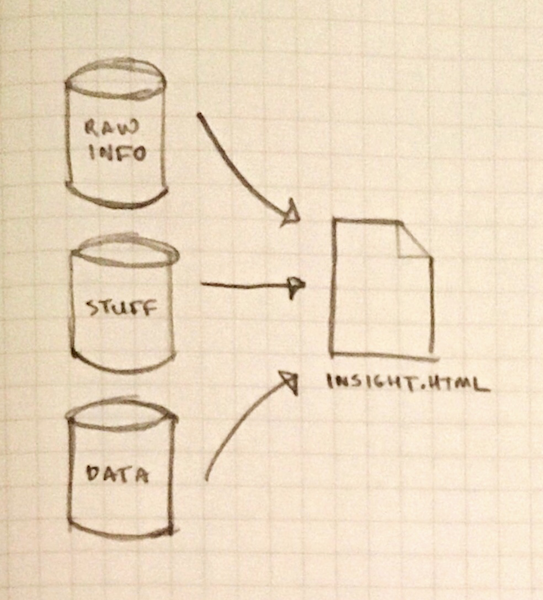 RAW
INFO
STUFF
DATA
INSIGHT.HTML